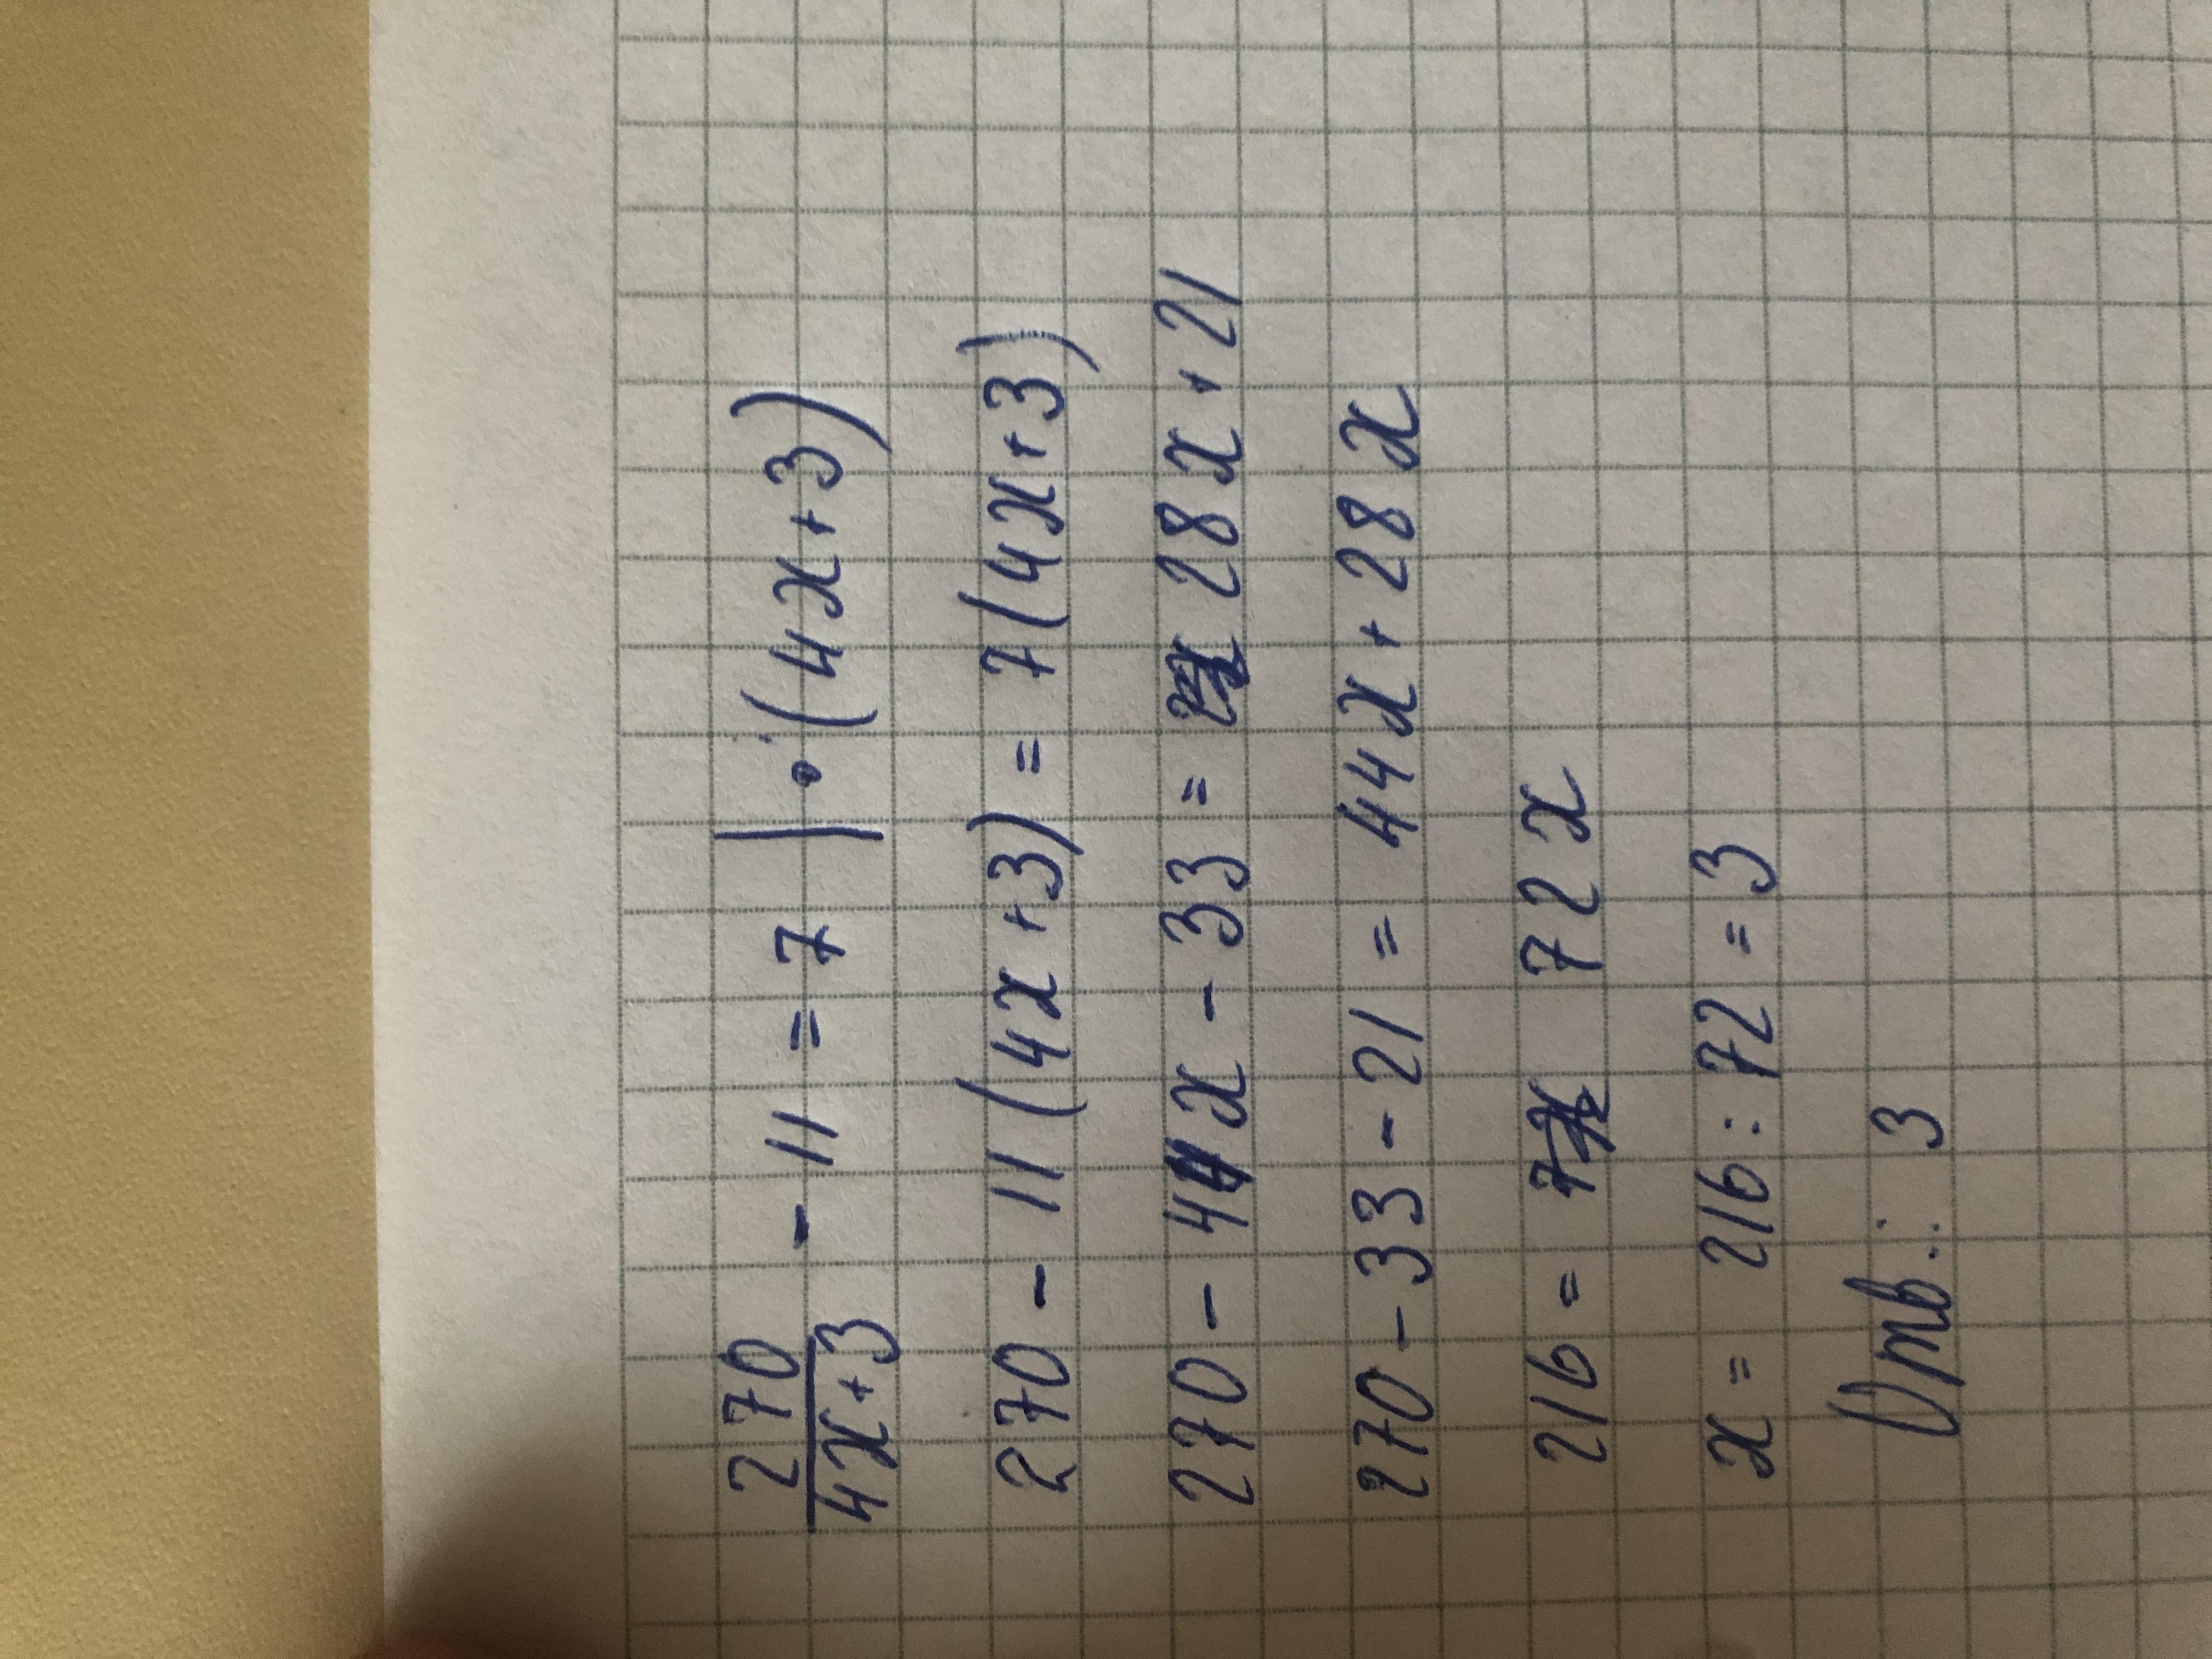 270/4x+3 - 11 = 7 | · (4x+3)
270 - 11(4x+3) = 7(4x+3)
270 - 44x - 33 = 28x + 21
270 - 33 - 21 = 44x + 28x
216 = 72x
x = 216 : 72 = 3
Отв.: 3